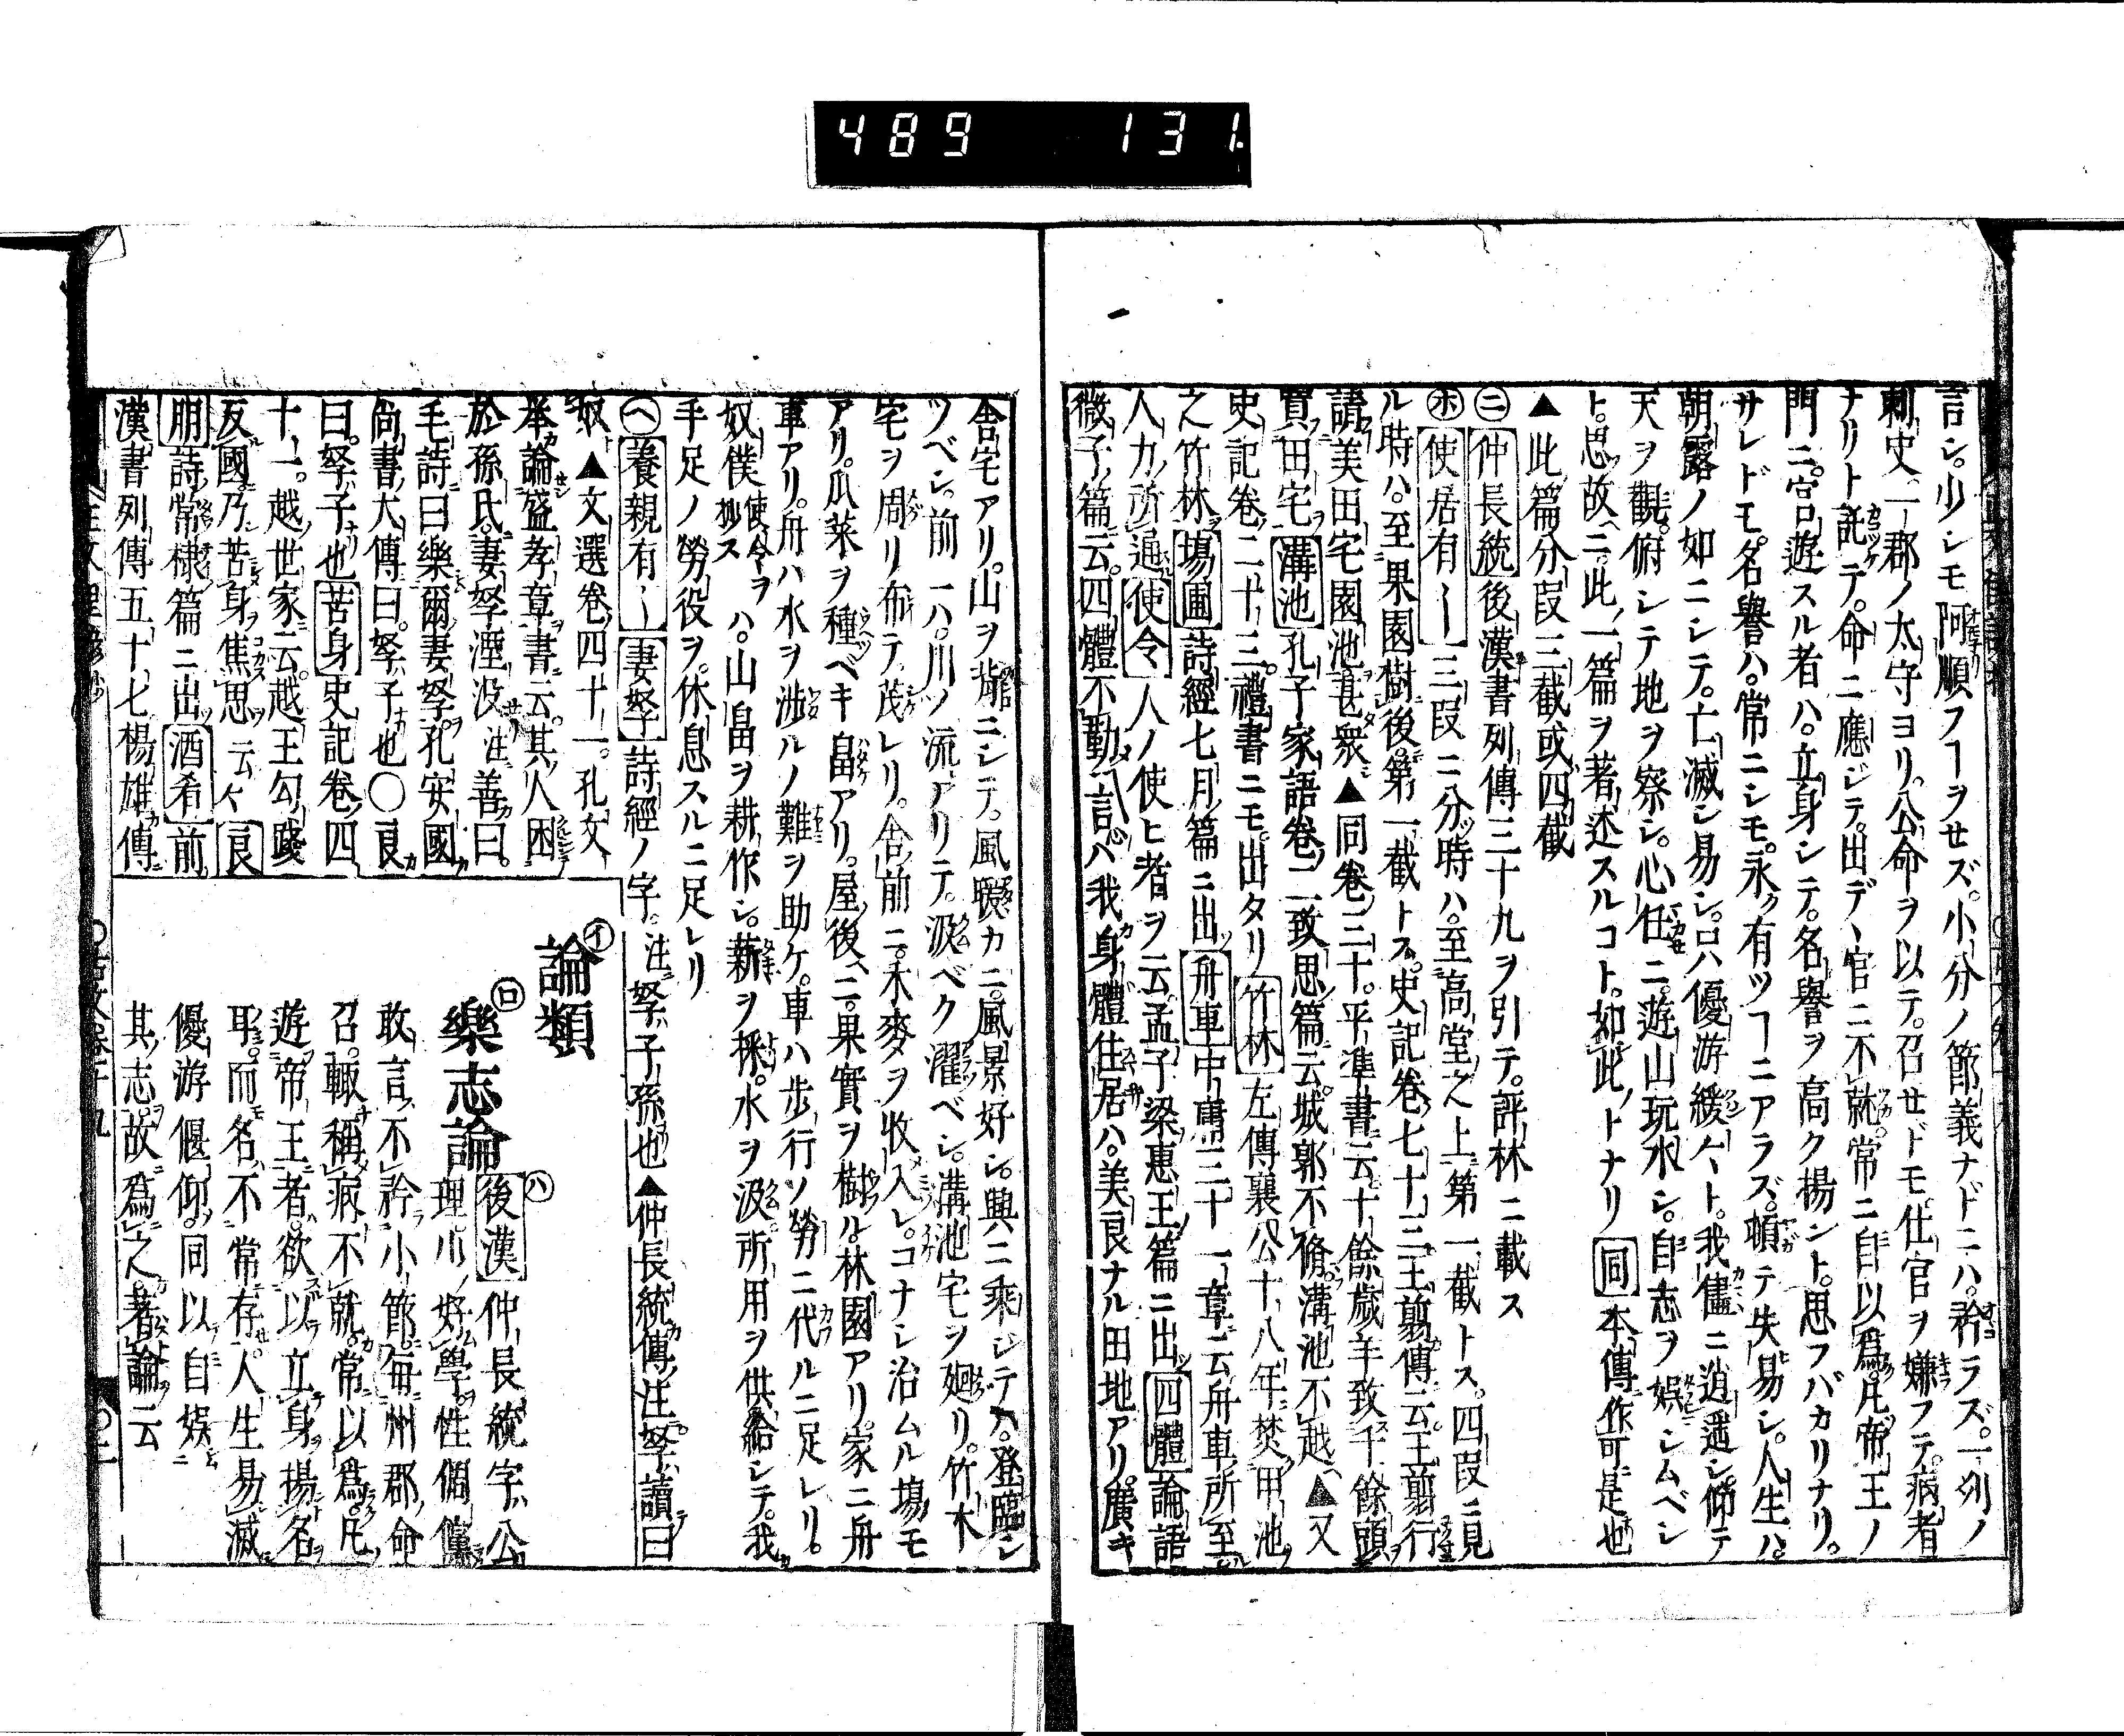 489 131
言シ。少シモ阿順フヿヲセズ。小分ノ節義ナドニハ。矜ラズ。一列ノ
刺史。一郡ノ太守ヨリ。公命ヲ以テ。召セドモ。仕官ヲ嫌フテ。病者
ナリト託テ。命ニ應ジテ。出デヽ官ニ不就。常ニ自以爲。凡帝王ノ
門ニ。宮遊スル者ハ。立身シテ。名譽ヲ高ク揚ント。思フバカリナリ。
サレドモ。名譽ハ。常ニシモ。永ク有ツヿニアラズ。頓テ失易シ。人生ハ。
朝露ノ如ニシテ。亡滅シ易シ。只優游緩々ト。我儘ニ逍遥シ。仰テ
天ヲ觀。俯シテ地ヲ察シ。心任ニ。遊山玩水シ。自志ヲ娯シムベシ
ト。思故ニ。此一篇ヲ著述スルコト。如此トナリ 同 本傳作可是也
▲此篇分叚三截或四截
㊁ 仲長統 後漢書列傳三十九ヲ引テ。評林ニ載ス
㋭ 使居有〡 三叚ニ分時ハ。至高堂之上第一截トス。四叚ニ見
ル時ハ。至果園樹後。第一截トス。史記卷七十三王翦傳云。王翦行
請美田宅園池甚衆▲同卷三十。平準書云十餘歲羊致千餘頭
買田宅 溝池 孔子家語卷二致思篇云。城郭不脩。溝池不越▲又
史記卷二十三。禮書ニモ。出タリ 竹林 左傳襄公十八年焚申池
之竹林 場圃 詩經七月篇ニ出 舟車 中庸三十一章云舟車所至
人力所通 使令 人ノ使ヒ者ヲ云。孟子梁惠王篇ニ出 四體 論語
微子篇云。四體不勤 言ハ我身體住居ハ。美良ナル田地アリ。廣キ
舍宅アリ。山ヲ背ニシテ。風暖カニ。風景好シ。興ニ乘ジテハ。登臨シ
ツベシ。前ハ。川ノ流アリテ。汲ベク濯ベシ。溝池宅ヲ廻リ。竹木
宅ヲ周リ布テ茂レリ。舍前ニ。禾麥ヲ收入レ。コナシ治ムル塲モ
アリ。瓜菜ヲ種ベキ畠アリ。屋後ニ。果實ヲ樹ル。林園アリ。家ニ舟
車アリ。舟ハ水ヲ渉ルノ難ヲ助ケ。車ハ歩行ノ勞ニ代ルニ足レリ。
奴僕使令ヲ抄スハ。山畠ヲ耕作シ。薪ヲ採。水ヲ汲。所用ヲ供給シテ。我
手足ノ勞役ヲ。休息スルニ足レリ
㋬ 養親有〡 妻孥 詩經ノ字。注孥子孫也▲仲長統傳注孥讀曰
奴▲文選卷四十一。孔文
擧論盛孝章書云。其人困
於孫氏。妻孥湮没 注善曰。
毛詩曰樂爾妻孥。孔安國
尚書大傳曰。孥子也○良
曰。孥子也 苦身 史記卷四
十一。越世家云。越王勾踐
反國。乃苦身焦思 云々 良
朋 詩常棣篇ニ出 酒肴 前
漢書列傳五十七楊雄傳
㋑ 論類
㋺ 樂志論
㋩ 後漢 仲長統字公
理。少好學。性倜儻
敢言。不矜小節。毎州郡命
召。輙稱病不就。常以爲。凡
遊帝王者。欲以立身揚名
耳。而名不常存。人生易滅
優游偃仰。同以自娯
其志。故爲之著論云